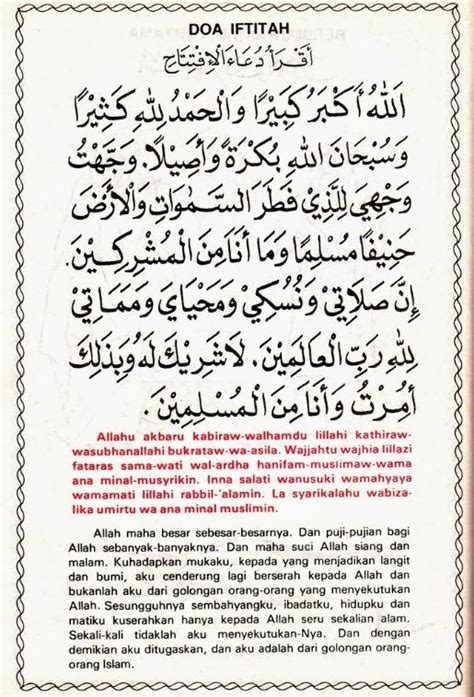 DOA IFTITAH
أَقْرَأُ دُعَاءَ الْإِفْتِتَاحِ
اَللهُ أَكْبَرُ كَبِيْرًا وَالْحَمْدُ لِلّٰهِ كَثِيْرًا
وَسُبْحَانَ اللهِ بُكْرَةً وَأَصِيْلًا. وَجَّهْتُ
وَجْهِيَ لِلَّذِيْ فَطَرَ السَّمٰوَاتِ وَالْأَرْضَ
حَنِيْفًا مُسْلِمًا وَمَا أَنَا مِنَ الْمُشْرِكِيْنَ.
إِنَّ صَلَاتِيْ وَنُسُكِيْ وَمَحْيَايَ وَمَمَاتِيْ
لِلّٰهِ رَبِّ الْعَالَمِيْنَ. لَا شَرِيْكَ لَهُ وَبِذٰلِكَ
أُمِرْتُ وَأَنَا مِنَ الْمُسْلِمِيْنَ.
Allahu akbaru kabiraw-walhamdu lillahi kathiraw-
wasubhanallahi bukrataw-wa-asila. Wajjahtu wajhia lillazi
fataras sama-wati wal-ardha hanifam-muslimaw-wama
ana minal-musyrikin. Inna salati wanusuki wamahyaya
wamamati lillahi rabbil-'alamin. La syarikalahu wabiza-
lika umirtu wa ana minal muslimin.
Allah maha besar sebesar-besarnya. Dan puji-pujian bagi
Allah sebanyak-banyaknya. Dan maha suci Allah siang dan
malam. Kuhadapkan mukaku, kepada yang menjadikan langit
dan bumi, aku cenderung lagi berserah kepada Allah dan
bukanlah aku dari golongan orang-orang yang menyekutukan
Allah. Sesungguhnya sembahyangku, ibadatku, hidupku dan
matiku kuserahkan hanya kepada Allah seru sekalian alam.
Sekali-kali tidaklah aku menyekutukan-Nya. Dan dengan
demikian aku ditugaskan, dan aku adalah dari golongan orang-
orang Islam.